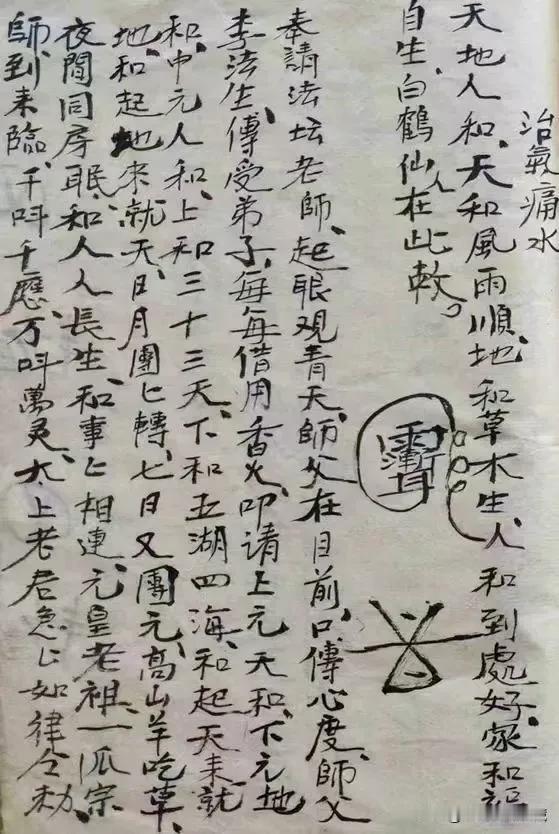 治氣痛水
天地人和、天和風雨順、地和草木生、人和到處好、家和福
自生、白鶴仙人在此敕。
奉請法坛老師、起眼观青天、師父在目前、口傳心度、師父
李法生、傳受弟子、每每借用香火、叩请上元天和、下元地
和、中元人和、上和三十三天、下和五湖四海、和起天来就
地、和起地來就天、日月團匕轉、七日又團元、高山羊吃草、
夜間同房眠、和人人長生、和事匕相連、元皇老祖、一派宗
師、到来臨、千叫千應、万叫萬灵、太上老君急匕如律令敕、